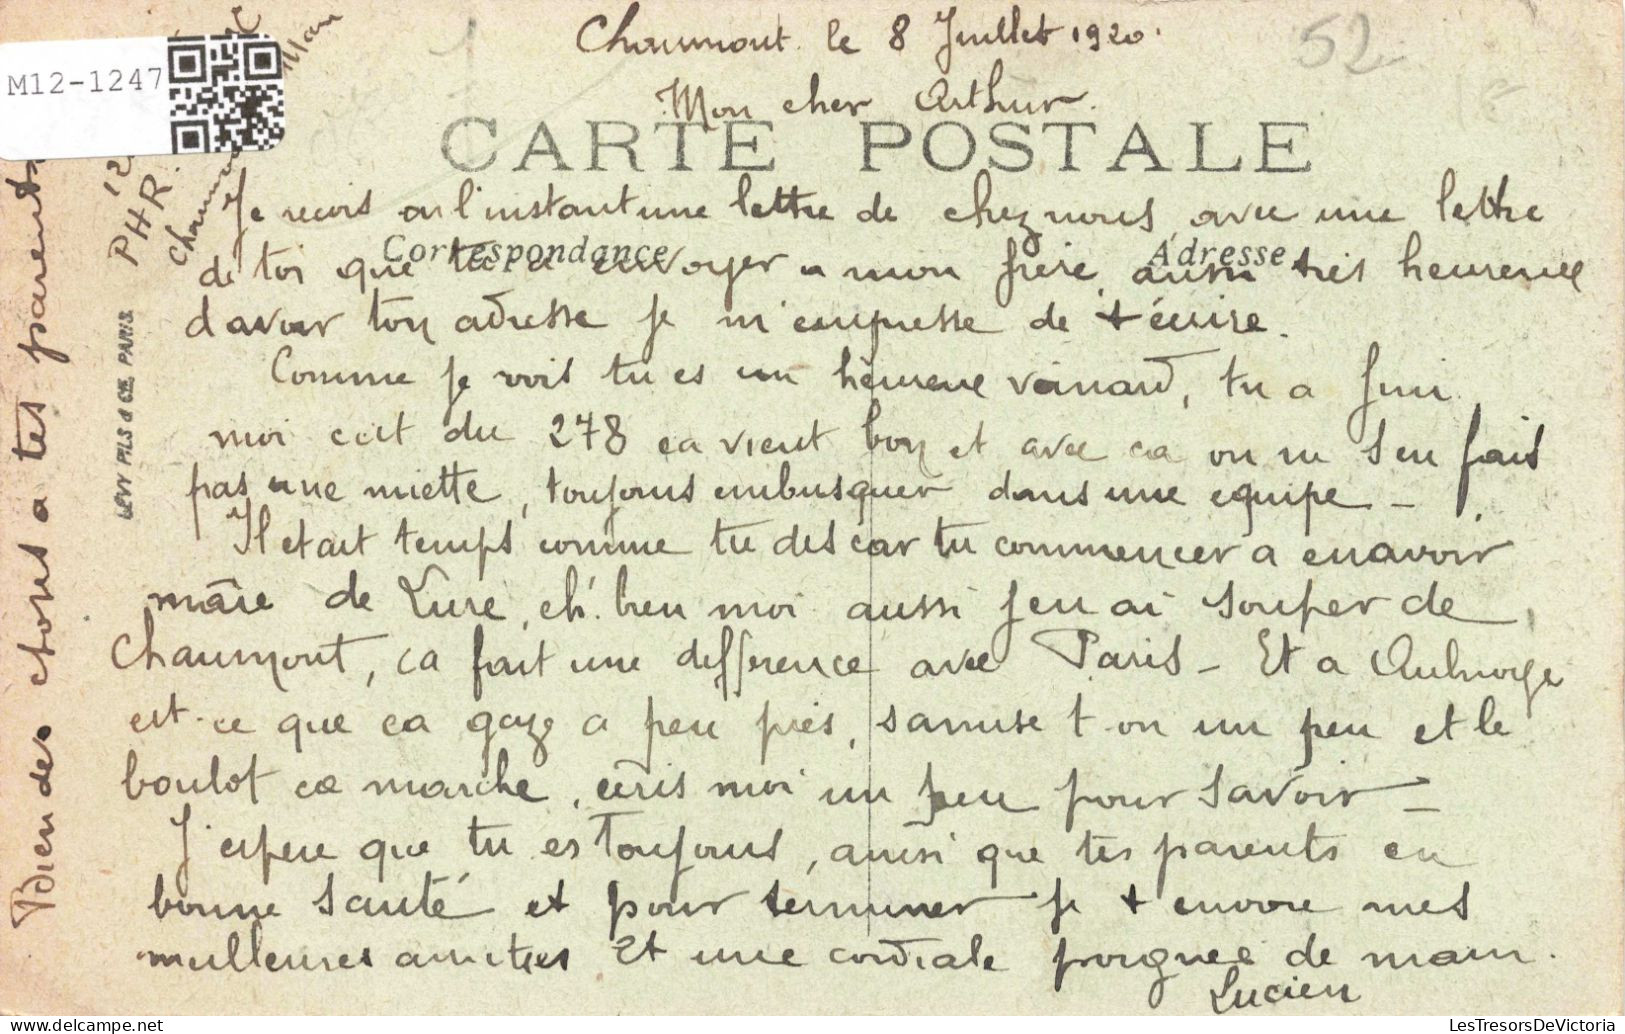 Chaumont. le 8 Juillet 1920.
Mon cher Arthur.
CARTE POSTALE
Correspondance
Adresse
Je recois a l'instant une lettre de chez nous, avec une lettre
de toi que tu a envoyer a mon frere, aussi très heureuse
d'avoir ton adresse je m'empresse de t'écrire.
Comme je vois tu es un heureux veinard, tu a fini
moi cest du 278 ca vient bon et avec ca on ne s'en fais
pas une miette, toujours embusquer dans une equipe -
Il etait temps comme tu dis car tu commencer a en avoir
mare de Lure, eh! bien moi aussi j'en ai souper de
Chaumont, ca fait une difference avec Paris - Et a Aulnoye
est-ce que ca gaze a peu près, samuse t-on un peu et le
boulot ca marche, ecris moi un peu pour savoir -
J'espere que tu es Toujours, ainsi que tes parents en
bonne santé et pour terminer je t envoie mes
meilleures amitiés Et une cordiale poignée de main.
Lucien
Bien des choses a tes parents
LEVY FILS & CIE, PARIS.
12
PHR.
M12-1247
52
LesTresorsDeVictoria